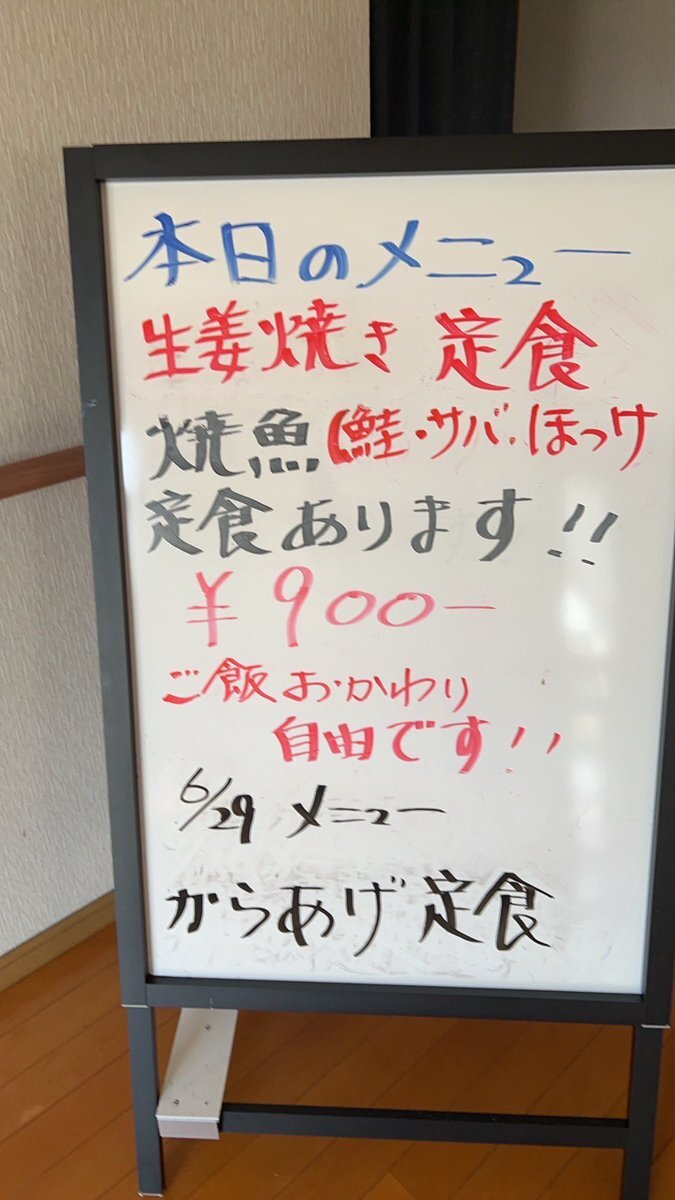 本日のメニュー
生姜焼き 定食
焼魚(鮭・サバ・ほっけ
定食あります!!
¥900ー
ご飯おかわり
自由です!!
6/29 メニュー
からあげ定食